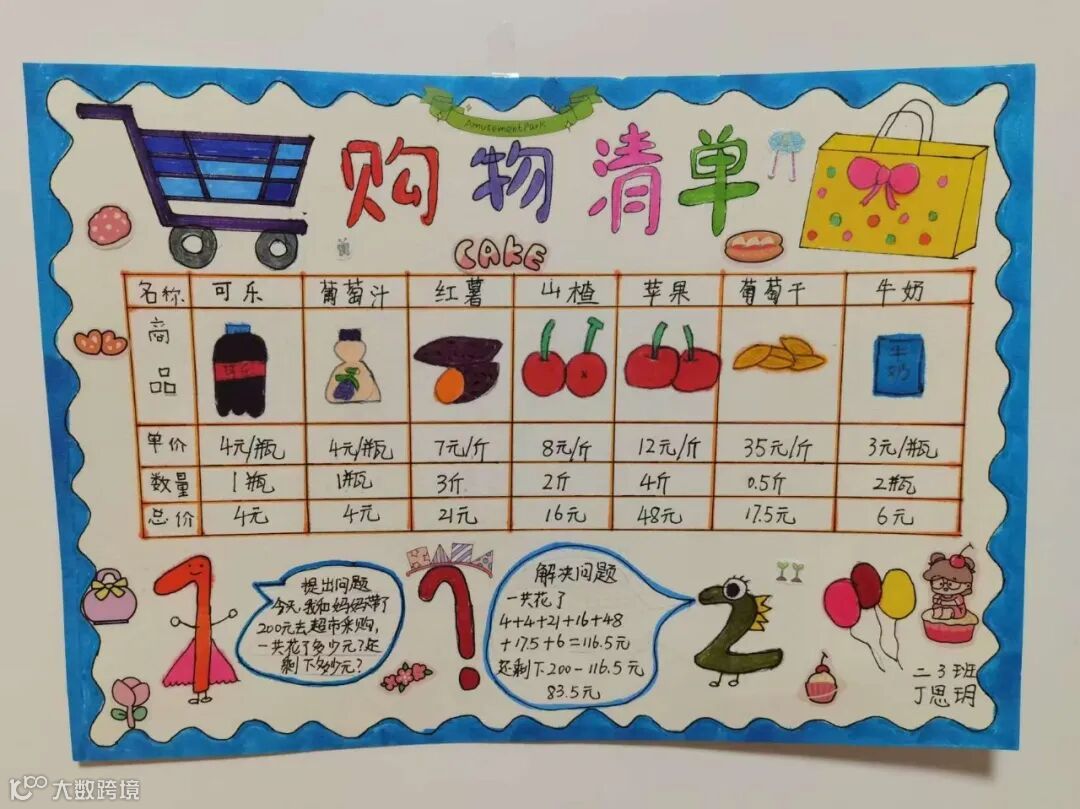 AmusementPark
购物清单
CAKE
名称 可乐 葡萄汁 红薯 山楂 苹果 葡萄干 牛奶
商品
可乐
牛奶
单价 4元/瓶 4元/瓶 7元/斤 8元/斤 12元/斤 35元/斤 3元/瓶
数量 1瓶 1瓶 3斤 2斤 4斤 0.5斤 2瓶
总价 4元 4元 21元 16元 48元 17.5元 6元
提出问题
今天,我和妈妈带了
200元去超市采购,
一共花了多少元?还
剩下多少元?
解决问题
一共花了
4+4+21+16+48
+17.5+6=116.5元
还剩下200-116.5元
83.5元
二3班
丁思玥
大数跨境